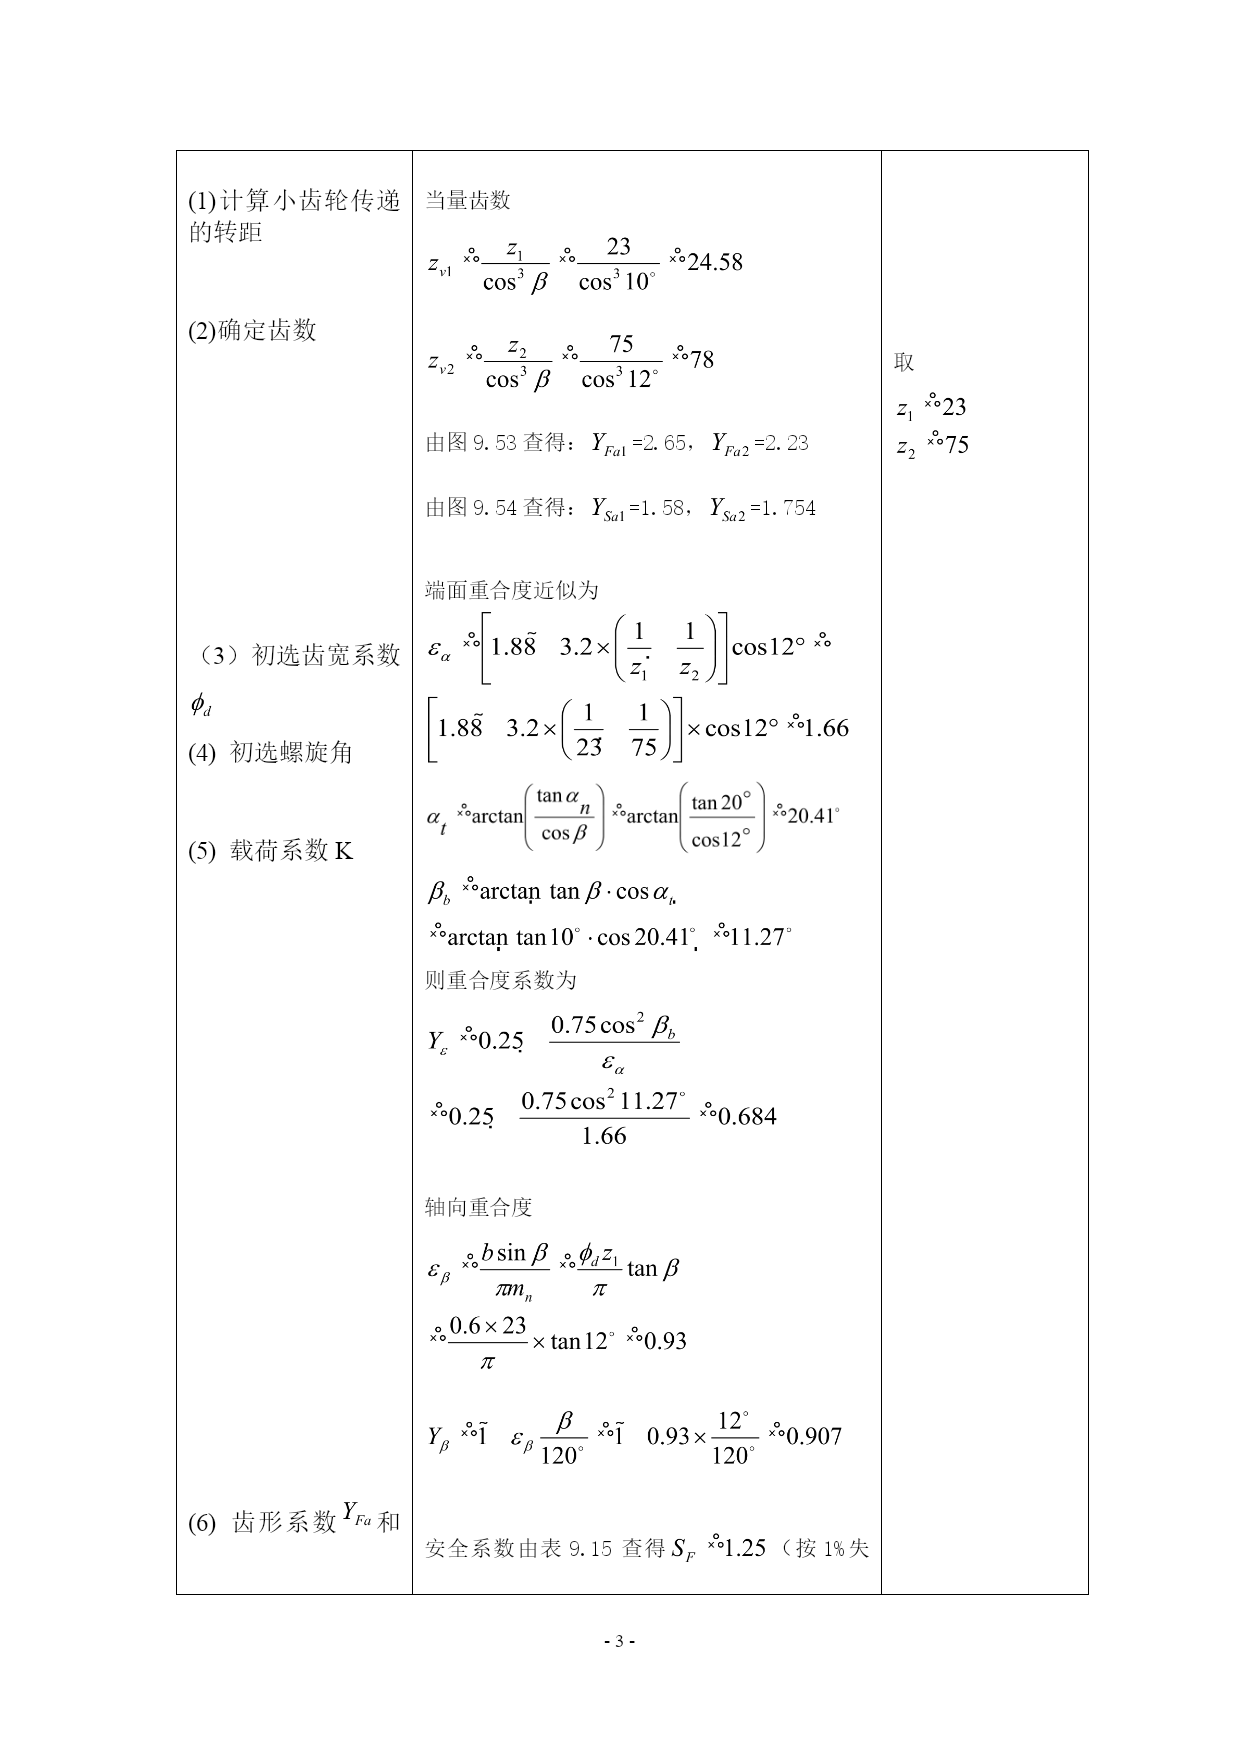 (1)计算小齿轮传递
的转距
(2)确定齿数
（3）初选齿宽系数
ϕ_d
(4) 初选螺旋角
(5) 载荷系数 K
(6) 齿形系数 Y_Fa 和
当量齿数
z_v1 = z_1 / cos³ β = 23 / cos³ 10° = 24.58
z_v2 = z_2 / cos³ β = 75 / cos³ 12° = 78
由图 9.53 查得：Y_Fa1 =2.65，Y_Fa2 =2.23
由图 9.54 查得：Y_Sa1 =1.58，Y_Sa2 =1.754
端面重合度近似为
ε_α = [1.88 − 3.2 × (1/z_1 + 1/z_2)] cos12° =
[1.88 − 3.2 × (1/23 + 1/75)] × cos12° = 1.66
α_t = arctan(tan α_n / cos β) = arctan(tan 20° / cos12°) = 20.41°
β_b = arctan(tan β · cos α_t)
= arctan(tan10° · cos 20.41°) = 11.27°
则重合度系数为
Y_ε = 0.25 + 0.75 cos² β_b / ε_α
= 0.25 + 0.75 cos² 11.27° / 1.66 = 0.684
轴向重合度
ε_β = b sin β / πm_n = ϕ_d z_1 / π tan β
= 0.6 × 23 / π × tan12° = 0.93
Y_β = 1 − ε_β β / 120° = 1 − 0.93 × 12° / 120° = 0.907
安全系数由表 9.15 查得 S_F = 1.25（按 1%失
取
z_1 = 23
z_2 = 75
- 3 -